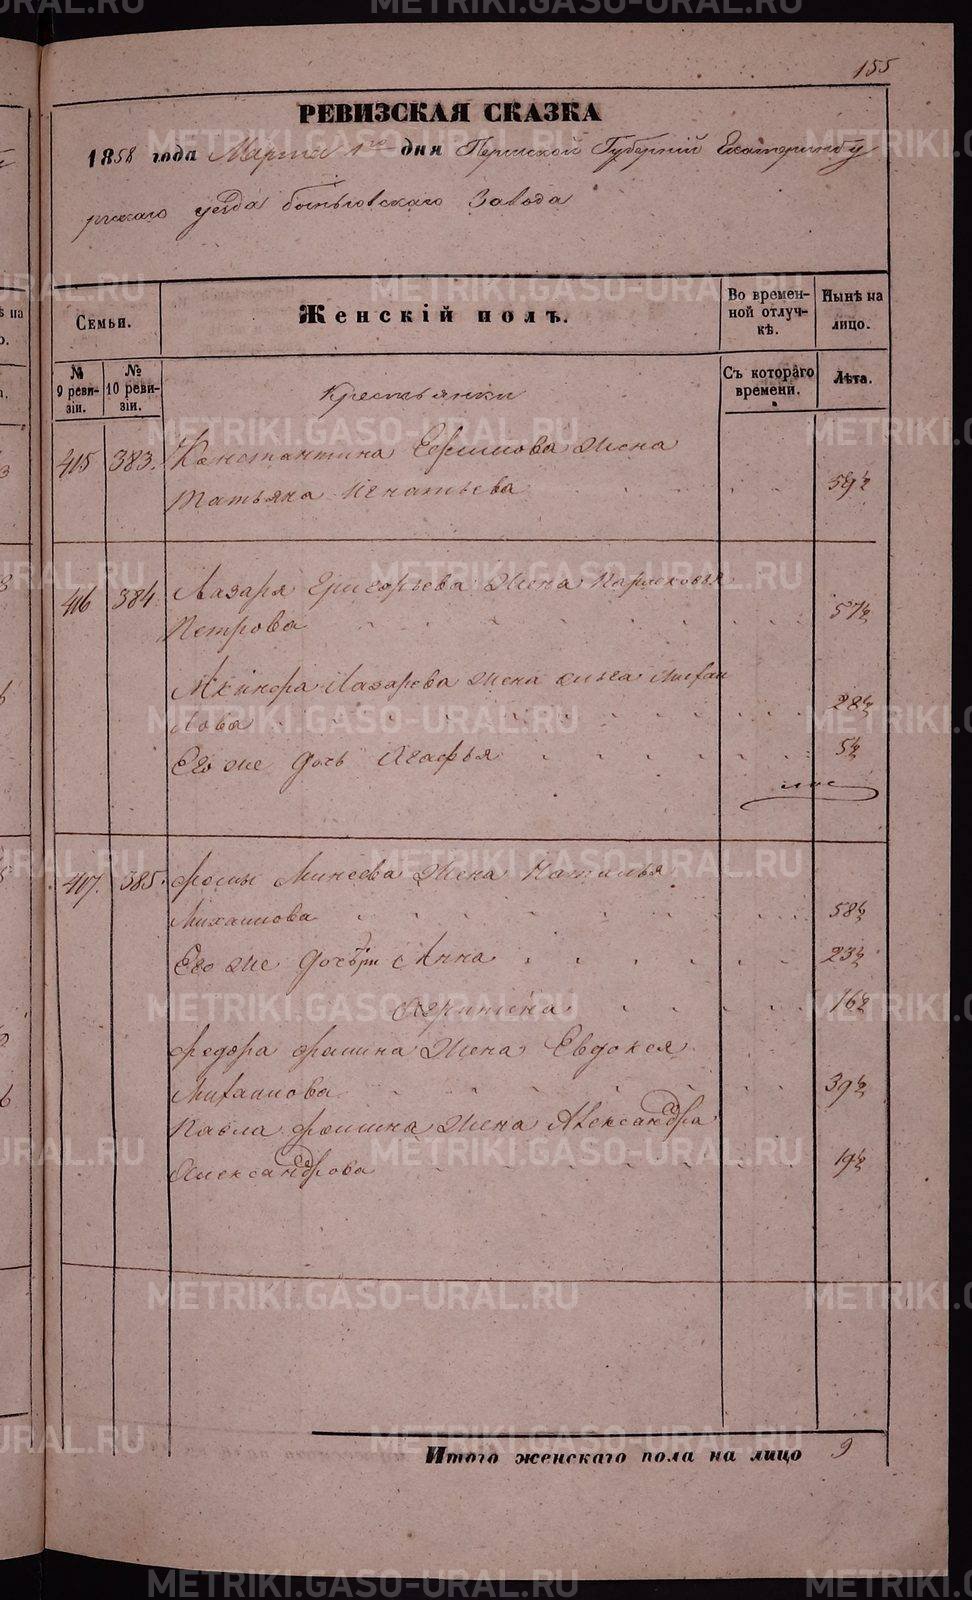 155
РЕВИЗСКАЯ СКАЗКА
1858 года Марта 1го дня Пермской Губерніи Екатеринбу
ргскаго уезда быньговскаго Завода
Семьи.
Женскій полъ.
Во времен-
ной отлуч-
кѣ.
Нынѣ на
лицо.
№
9 реви-
зіи.
№
10 реви-
зіи.
Крестьянки
Съ котораго
времени.
Лѣта.
415 383. Константина Ефимова жена
Татьяна Игнатьева 59½
416 384 Лазаря Григорьева жена Парасковья
Петрова 57½
Лазарева жена
лова 28½
Его же дочь Агафья 5½
417. 385. Фомы Минеева жена Наталья
Михаилова 58½
Его же Анна 23½
16½
Федора Фомина жена Евдокея
Михаилова 39½
Павла Фомина жена Александра
Александрова 19½
Итого женскаго пола на лицо 9
METRIKI.GASO-URAL.RU